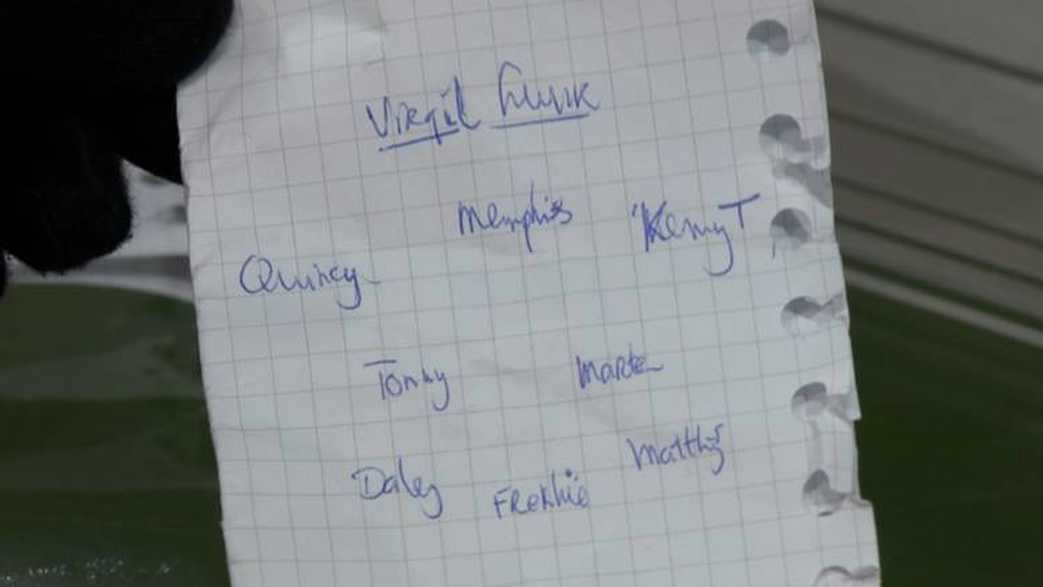 Virgil Luuk
Memphis Kenny T
Quincy
Tonny Marten
Matthijs
Daley Frenkie